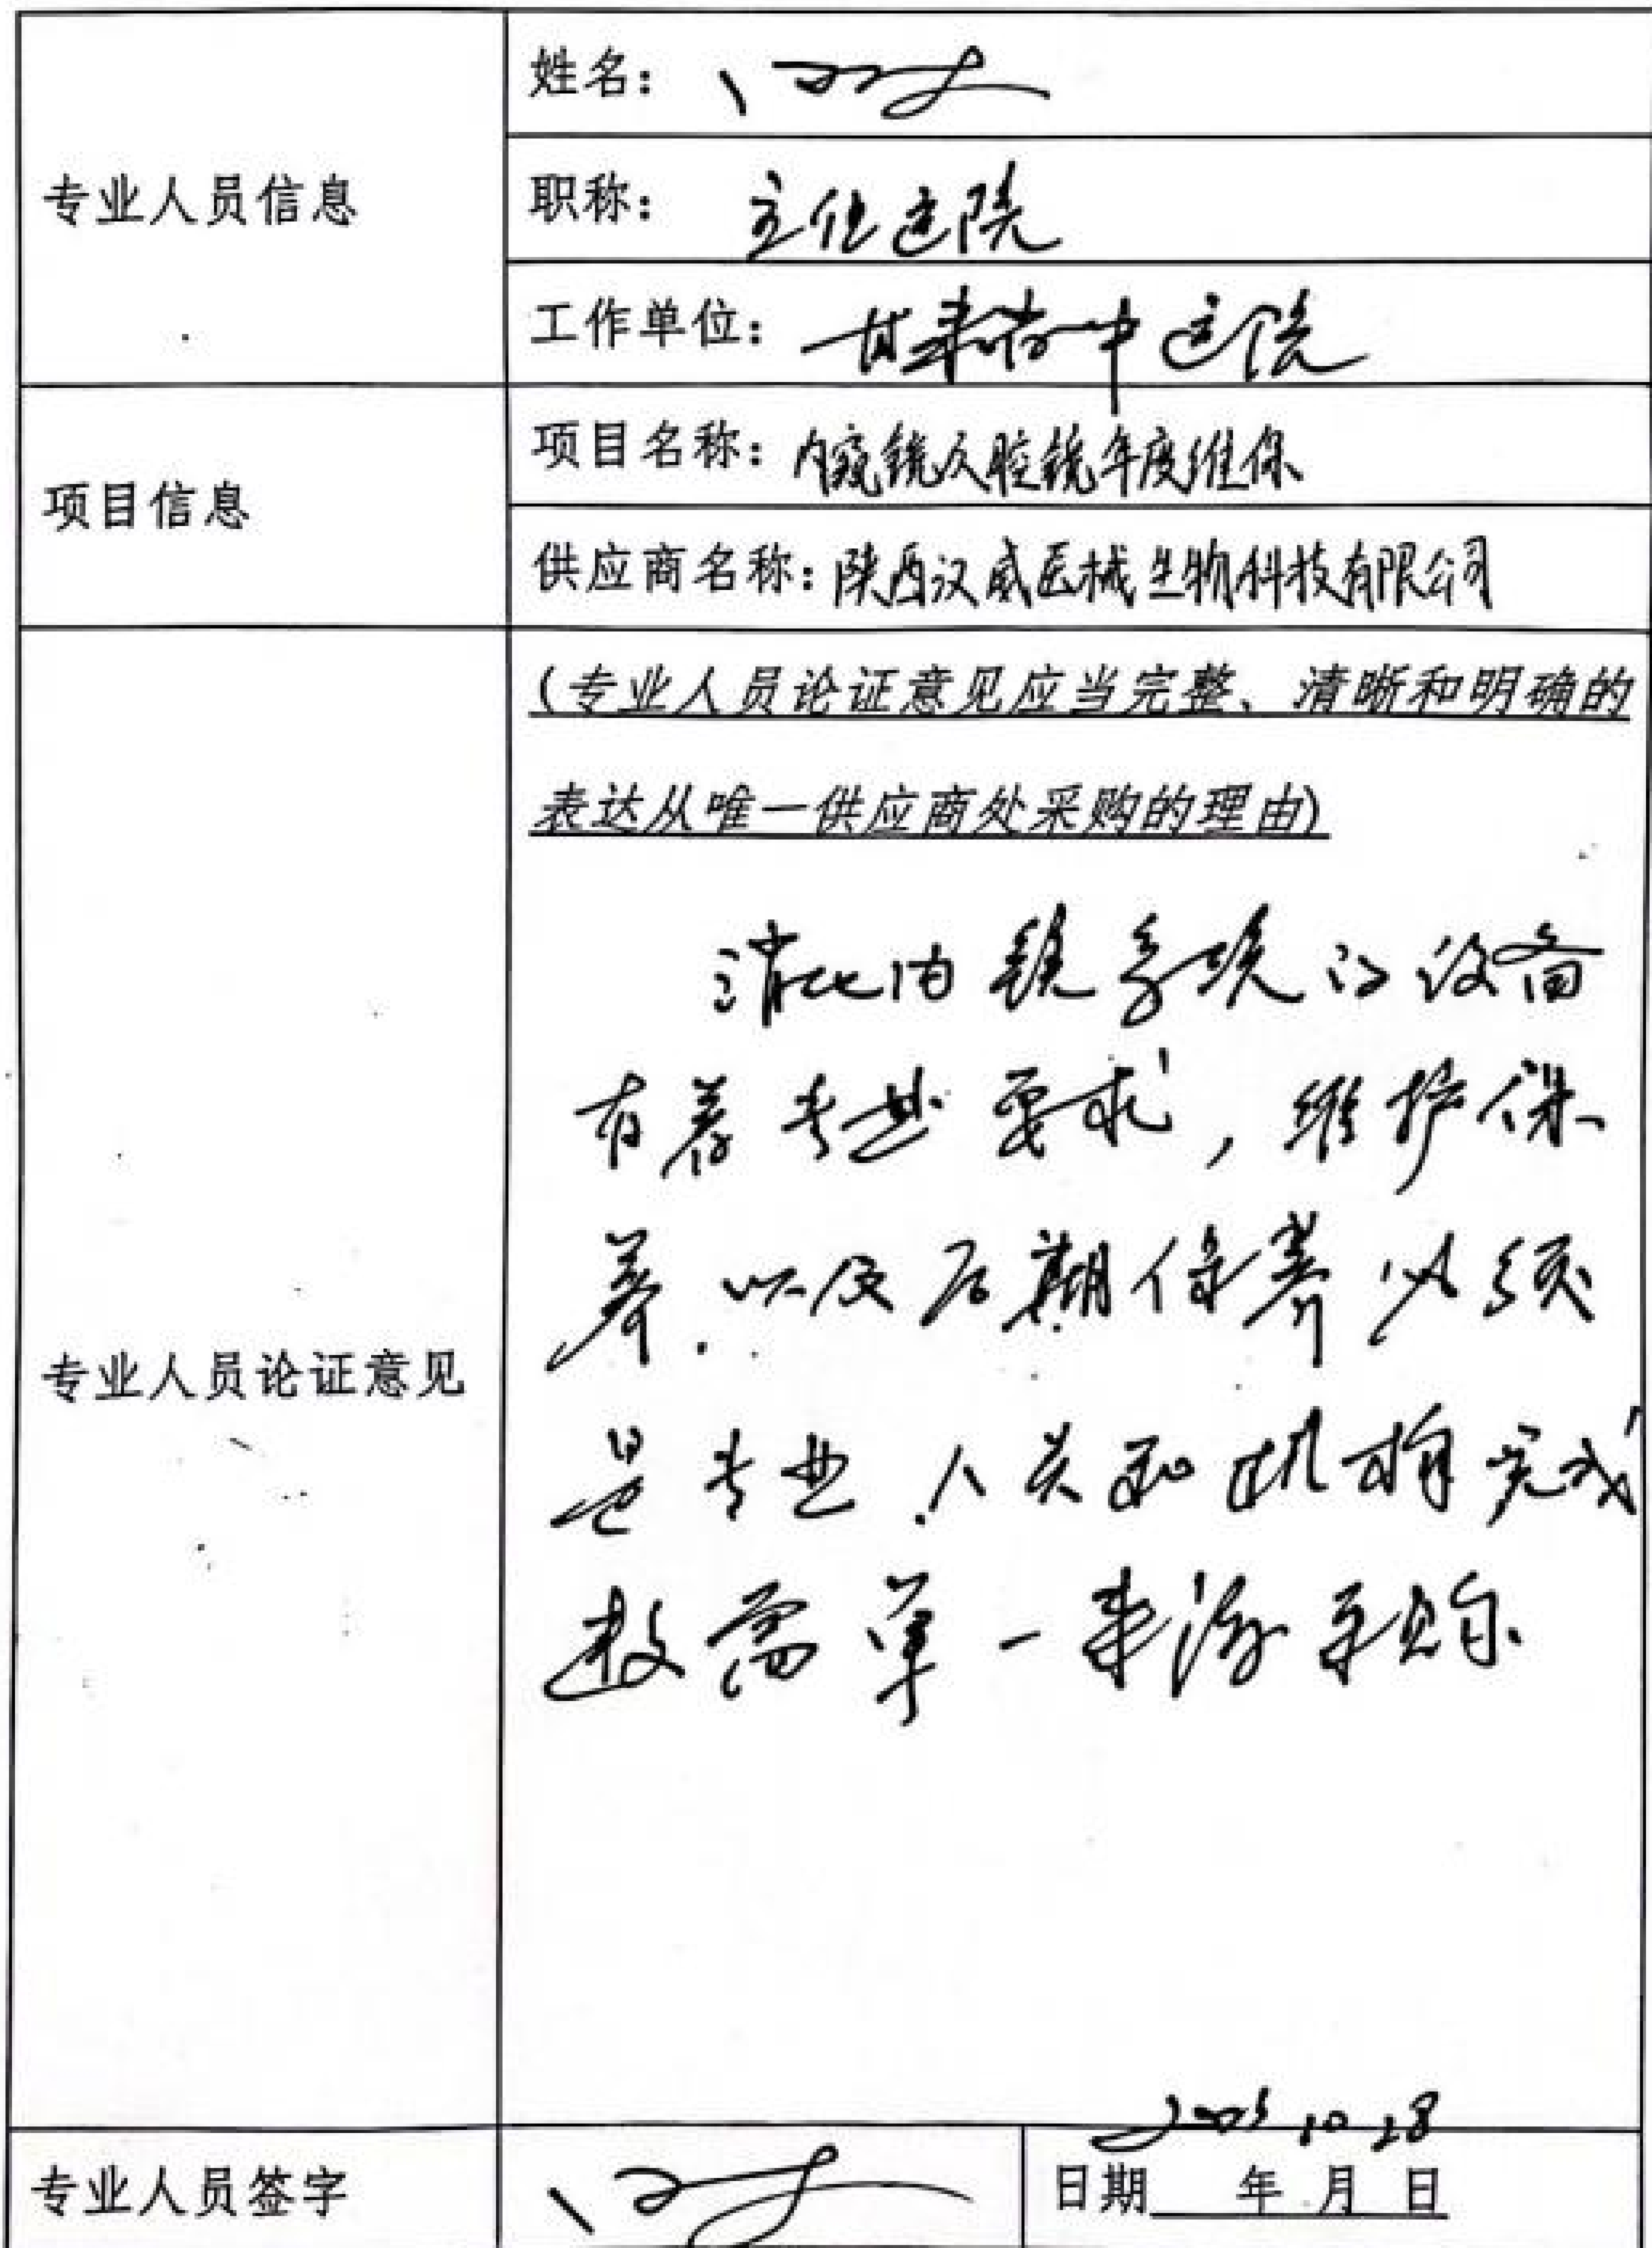 专业人员信息
姓名：
职称： 主任医院
工作单位： 甘肃省中医院
项目信息
项目名称：内窥镜及腔镜年度维保
供应商名称：陕西汉威医械生物科技有限公司
专业人员论证意见
（专业人员论证意见应当完整、清晰和明确的
表达从唯一供应商处采购的理由）
消化内镜系统的设备
有着专业要求，维护保
养．以及后期保养必须
是专业人员和机构完成
故需单一来源采购
专业人员签字
10 28
日期 年 月 日